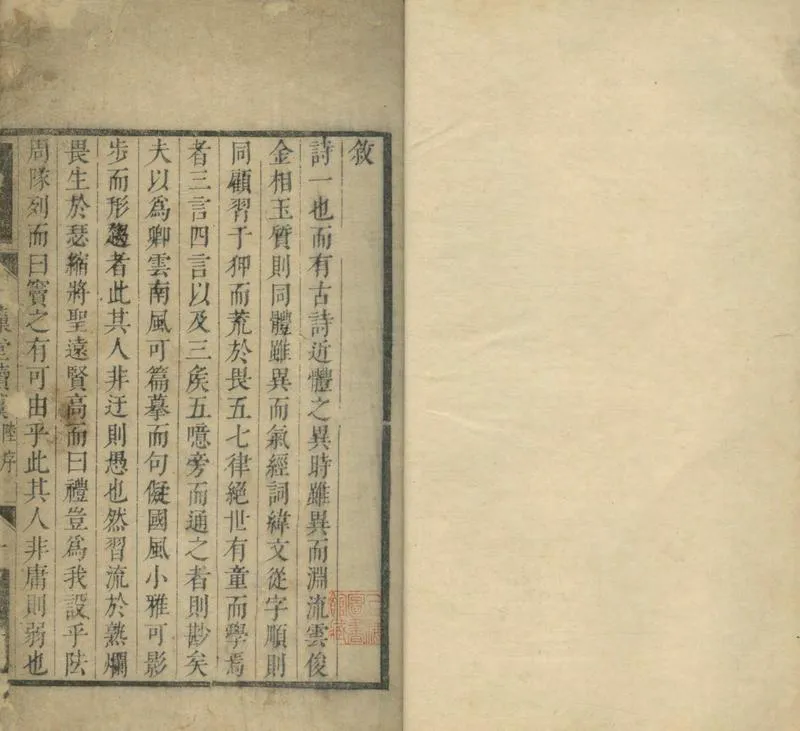 敘
詩一也而有古詩近體之異時雖異而淵流雲俊
金相玉質則同體雖異而氣經詞緯文從字順則
同顧習于狎而荒於畏五七律絕世有童而學焉
者三言四言以及三矦五噫旁而通之者則尟矣
夫以為卿雲南風可篇摹而句儗國風小雅可影
步而形趨者此其人非迂則愚也然習流於熟爛
畏生於瑟縮將聖遠賢高而曰禮豈為我設乎阹
周隊列而曰竇之有可由乎此其人非庸則弱也
陸序